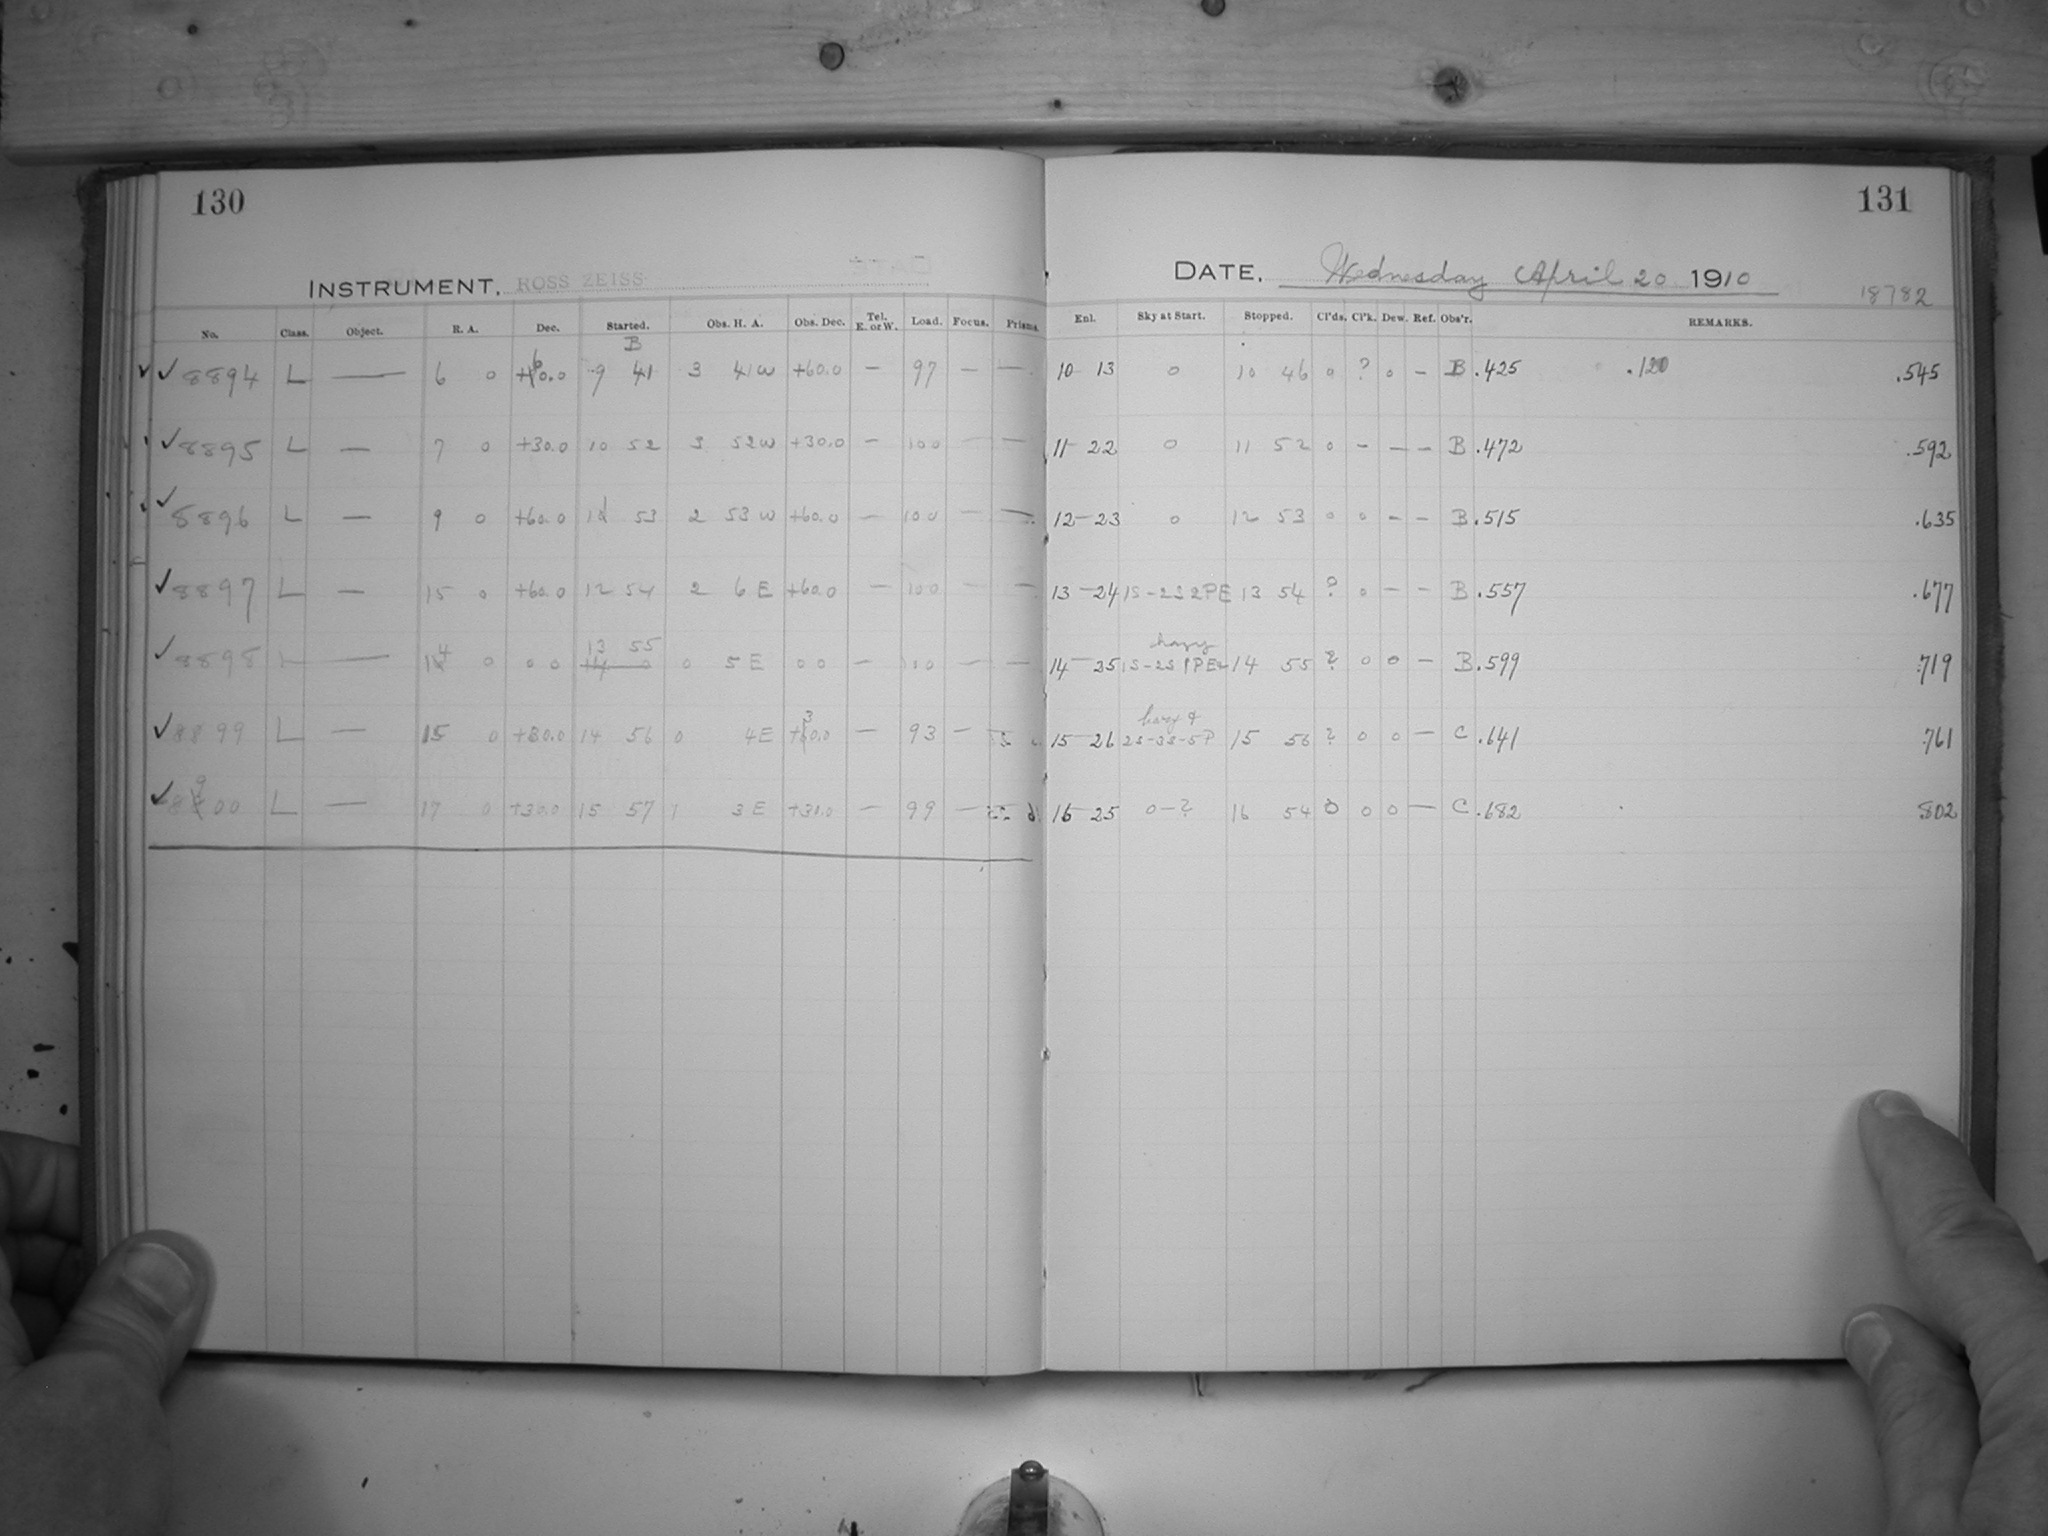 130
131
INSTRUMENT. ROSS ZEISS
DATE. Wednesday April 20 1910
18782
No. Class. Object. R. A. Dec. Started. Obs. H. A. Obs. Dec. Tel. E. or W. Load. Focus. Prisms. Enl. Sky at Start. Stopped. Cl'ds. Cl'k. Dew. Ref. Obs'r. REMARKS.
B
✓✓ 8894 L — 6 0 +60.0 9 41 3 41 W +60.0 — 97 — — 10 13 0 10 46 0 ? 0 — B .425 .120 .545
✓ 8895 L — 7 0 +30.0 10 52 3 52 W +30.0 — 100 — — 11 22 0 11 52 0 — — — B .472 .592
✓ 8896 L — 9 0 +60.0 11 53 2 53 W +60.0 — 100 — — 12 23 0 12 53 0 0 — — B .515 .635
✓ 8897 L — 15 0 +60.0 12 54 2 6 E +60.0 — 100 — — 13 24 1S-2S 2PE 13 54 ? 0 — — B .557 .677
13 55 hazy
✓ 8898 L — 14 0 0 0 14 0 0 5 E 0 0 — 100 — — 14 25 1S-2S 1PE 14 55 ? 0 0 — B .599 .719
✓ 8899 L — 15 0 +30.0 14 56 0 4 E +30.0 — 93 — 15 26 2S-3S-5P 15 56 ? 0 0 — C .641 .761
✓ 8900 L — 17 0 +30.0 15 57 1 3 E +30.0 — 99 — 16 25 0-? 16 54 0 0 0 — C .682 .802